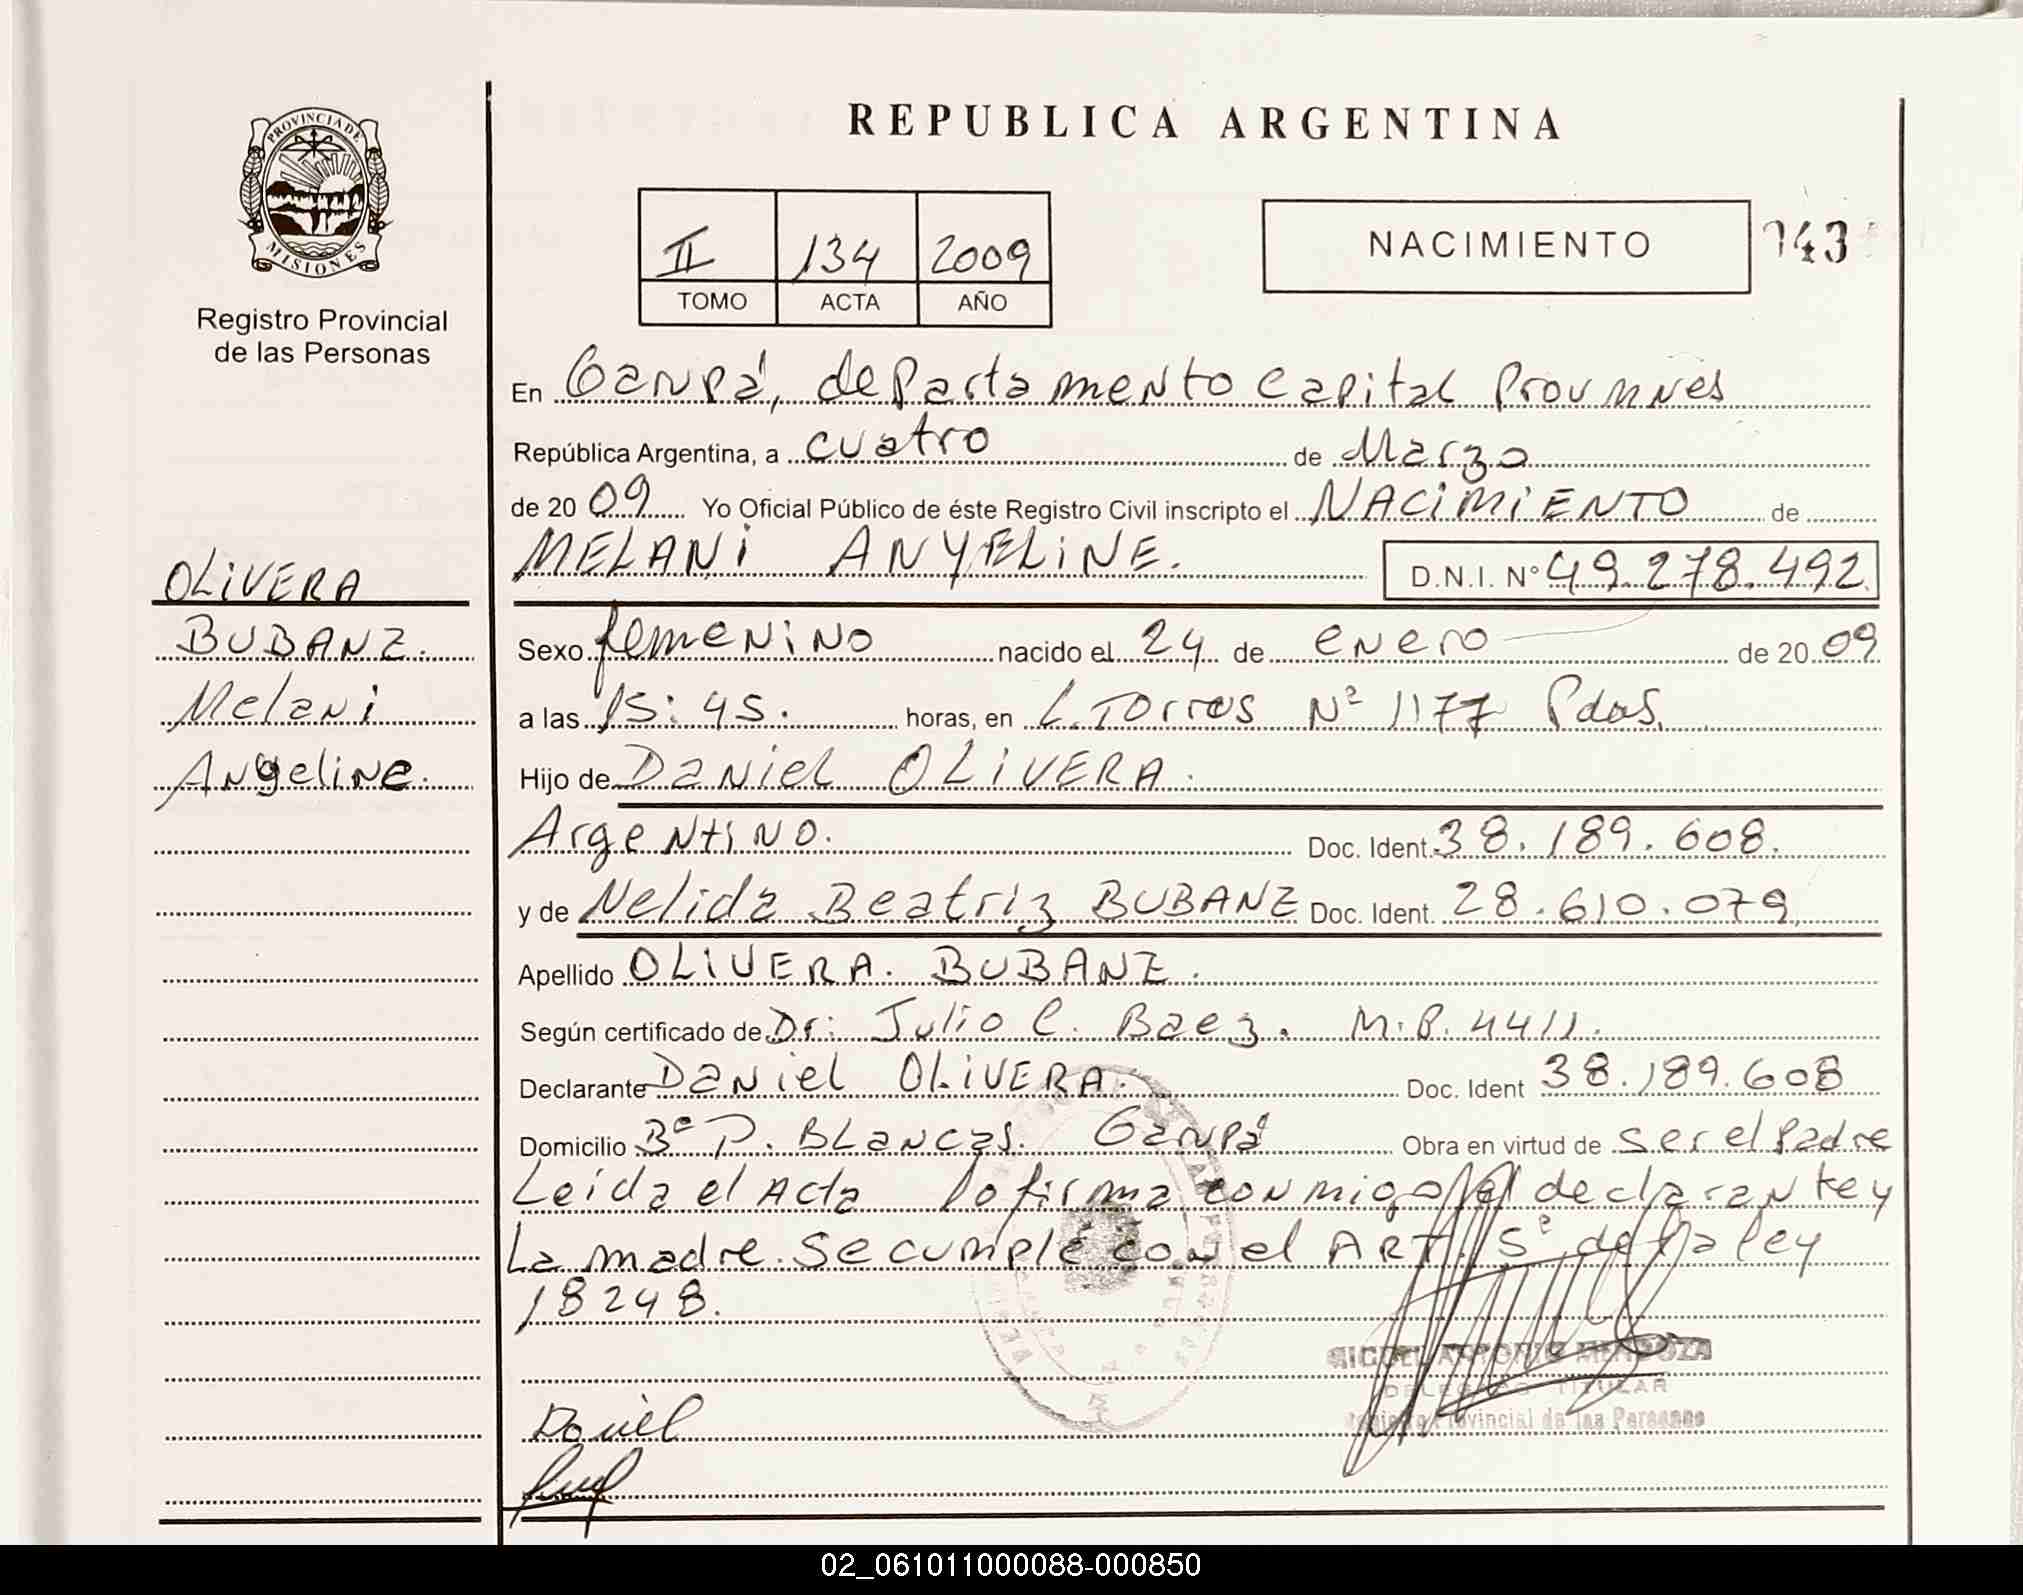 REPUBLICA ARGENTINA
PROVINCIA DE
MISIONES
Registro Provincial
de las Personas
II 134 2009
TOMO ACTA AÑO
NACIMIENTO
143
En Garupá, departamento Capital Prov mnes
República Argentina, a cuatro de Marzo
de 2009 Yo Oficial Público de éste Registro Civil inscripto el NACIMIENTO de
MELANI ANYELINE. D.N.I. N° 49.278.492
OLIVERA
BUBANZ.
Melani
Angeline.
Sexo femenino nacido el 24 de enero de 2009
a las 15:45. horas, en L. Torres Nº 1177 Pdas.
Hijo de Daniel OLIVERA.
Argentino. Doc. Ident. 38.189.608.
y de Nelida Beatriz BUBANZ Doc. Ident. 28.610.079
Apellido OLIVERA. BUBANZ.
Según certificado de Dr: Julio C. Baez. M.P. 4411.
Declarante Daniel OLIVERA. Doc. Ident 38.189.608
Domicilio Bº P. BLancas. Garupá Obra en virtud de ser el Padre
Leída el Acta lo firma conmigo el declarante y
La madre. Se cumple con el ART. 5º de la ley
18248.
MIGUEL ANTONIO MENDOZA
DELEGADO TITULAR
Registro Provincial de las Personas
Daniel
02_061011000088-000850